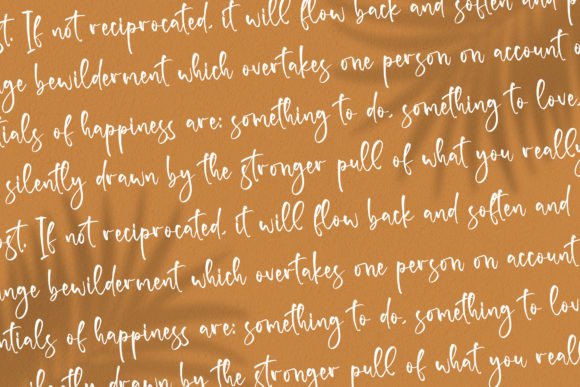 ost. If not reciprocated, it will flow back and soften and p
nge bewilderment which overtakes one person on account o
ntials of happiness are: something to do, something to love,
silently drawn by the stronger pull of what you really
ost. If not reciprocated, it will flow back and soften and
ange bewilderment which overtakes one person on account
entials of happiness are: something to do, something to lov
silently drawn by the stronger pull of what you reall